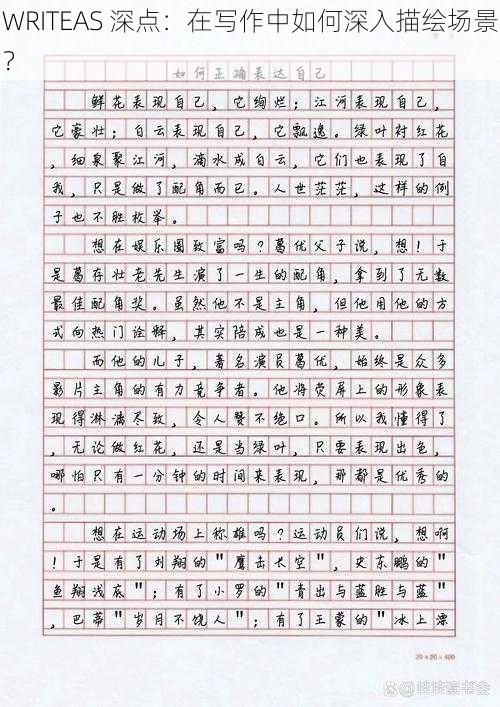 WRITEAS 深点：在写作中如何深入描绘场景
？
如何正确表达自己
鲜花表现自己，它绚烂；江河表现自己，
它豪壮；白云表现自己，它飘逸。绿叶衬红花
，细泉聚江河，滴水成白云，它们也表现了自
我，只是做了配角而已。人世茫茫，这样的例
子也不胜枚举。
想在娱乐圈致富吗？葛优父子说，想！于
是葛存壮老先生演了一生的配角，拿到了无数
最佳配角奖。虽然他不是主角，但他用他的方
式向热门诠释，其实陪成也是一种美。
而他的儿子，著名演员葛优，始终是众多
影片主角的有力竞争者。他将荧屏上的形象表
现得淋漓尽致，令人赞不绝口。所以我懂得了
，无论做红花，还是当绿叶，只要表现出色，
哪怕只有一分钟的时间来表现，那都是优秀的
。
想在运动场上称雄吗？运动员们说，想啊
！于是有了刘翔的"鹰击长空"，史东鹏的"
鱼翔浅底"；有了小罗的"青出与蓝胜与蓝"
，巴蒂"岁月不饶人"；有了王蒙的"冰上漂
20×20=400